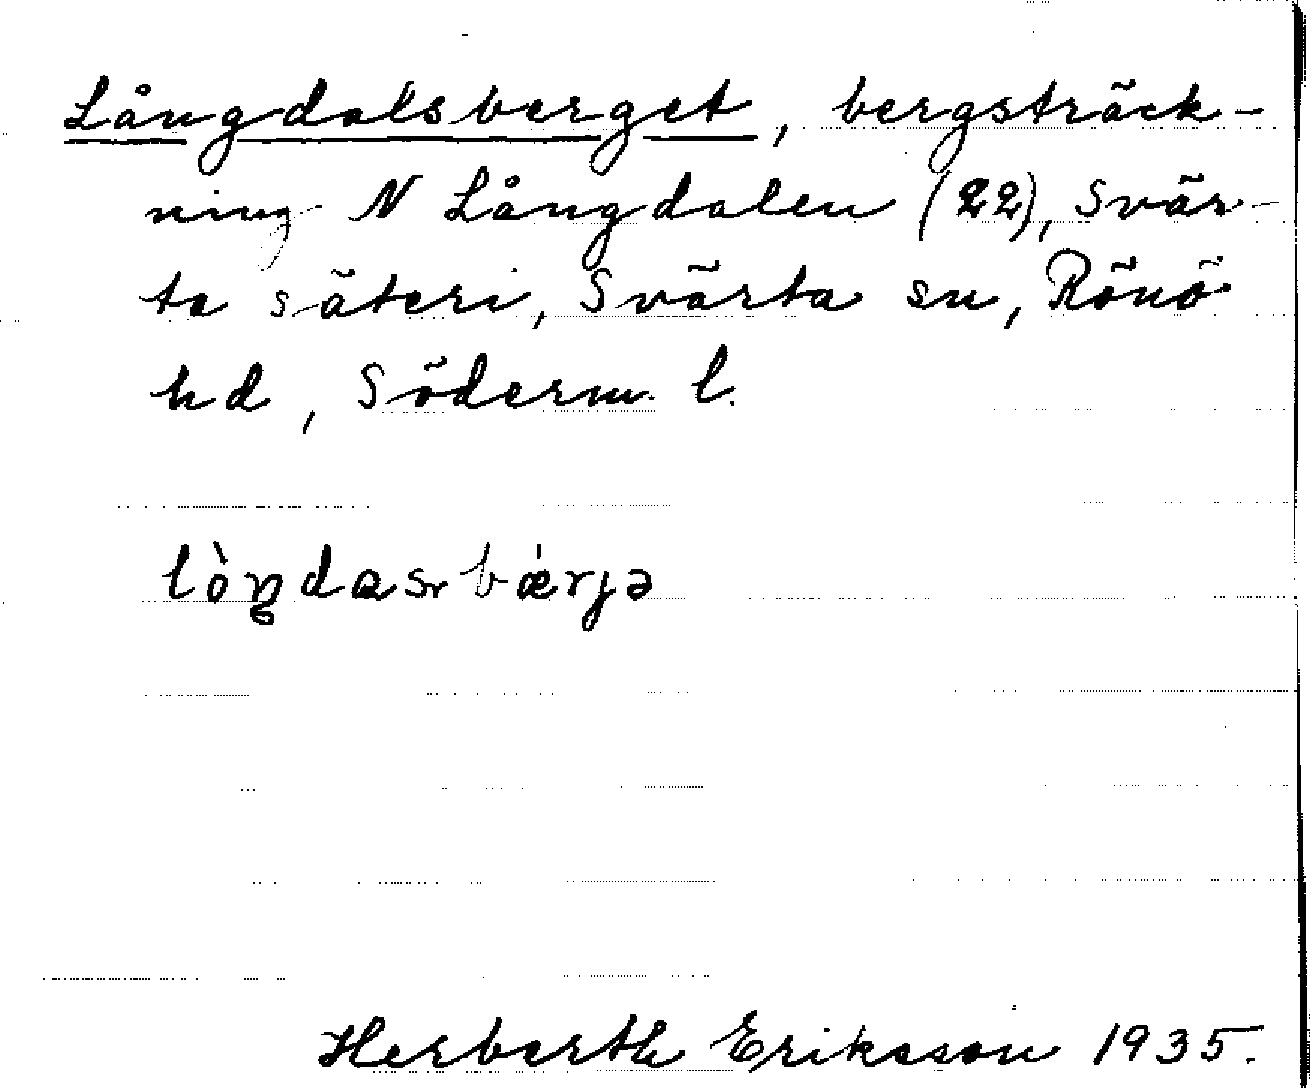 Långdalsberget, bergsträck-
ning N Långdalen (22), Svär-
ta säteri, Svärta sn, Rönö
hd, Söderm. l.
lòŋdasbǽrjə
Herberth Eriksson 1935.